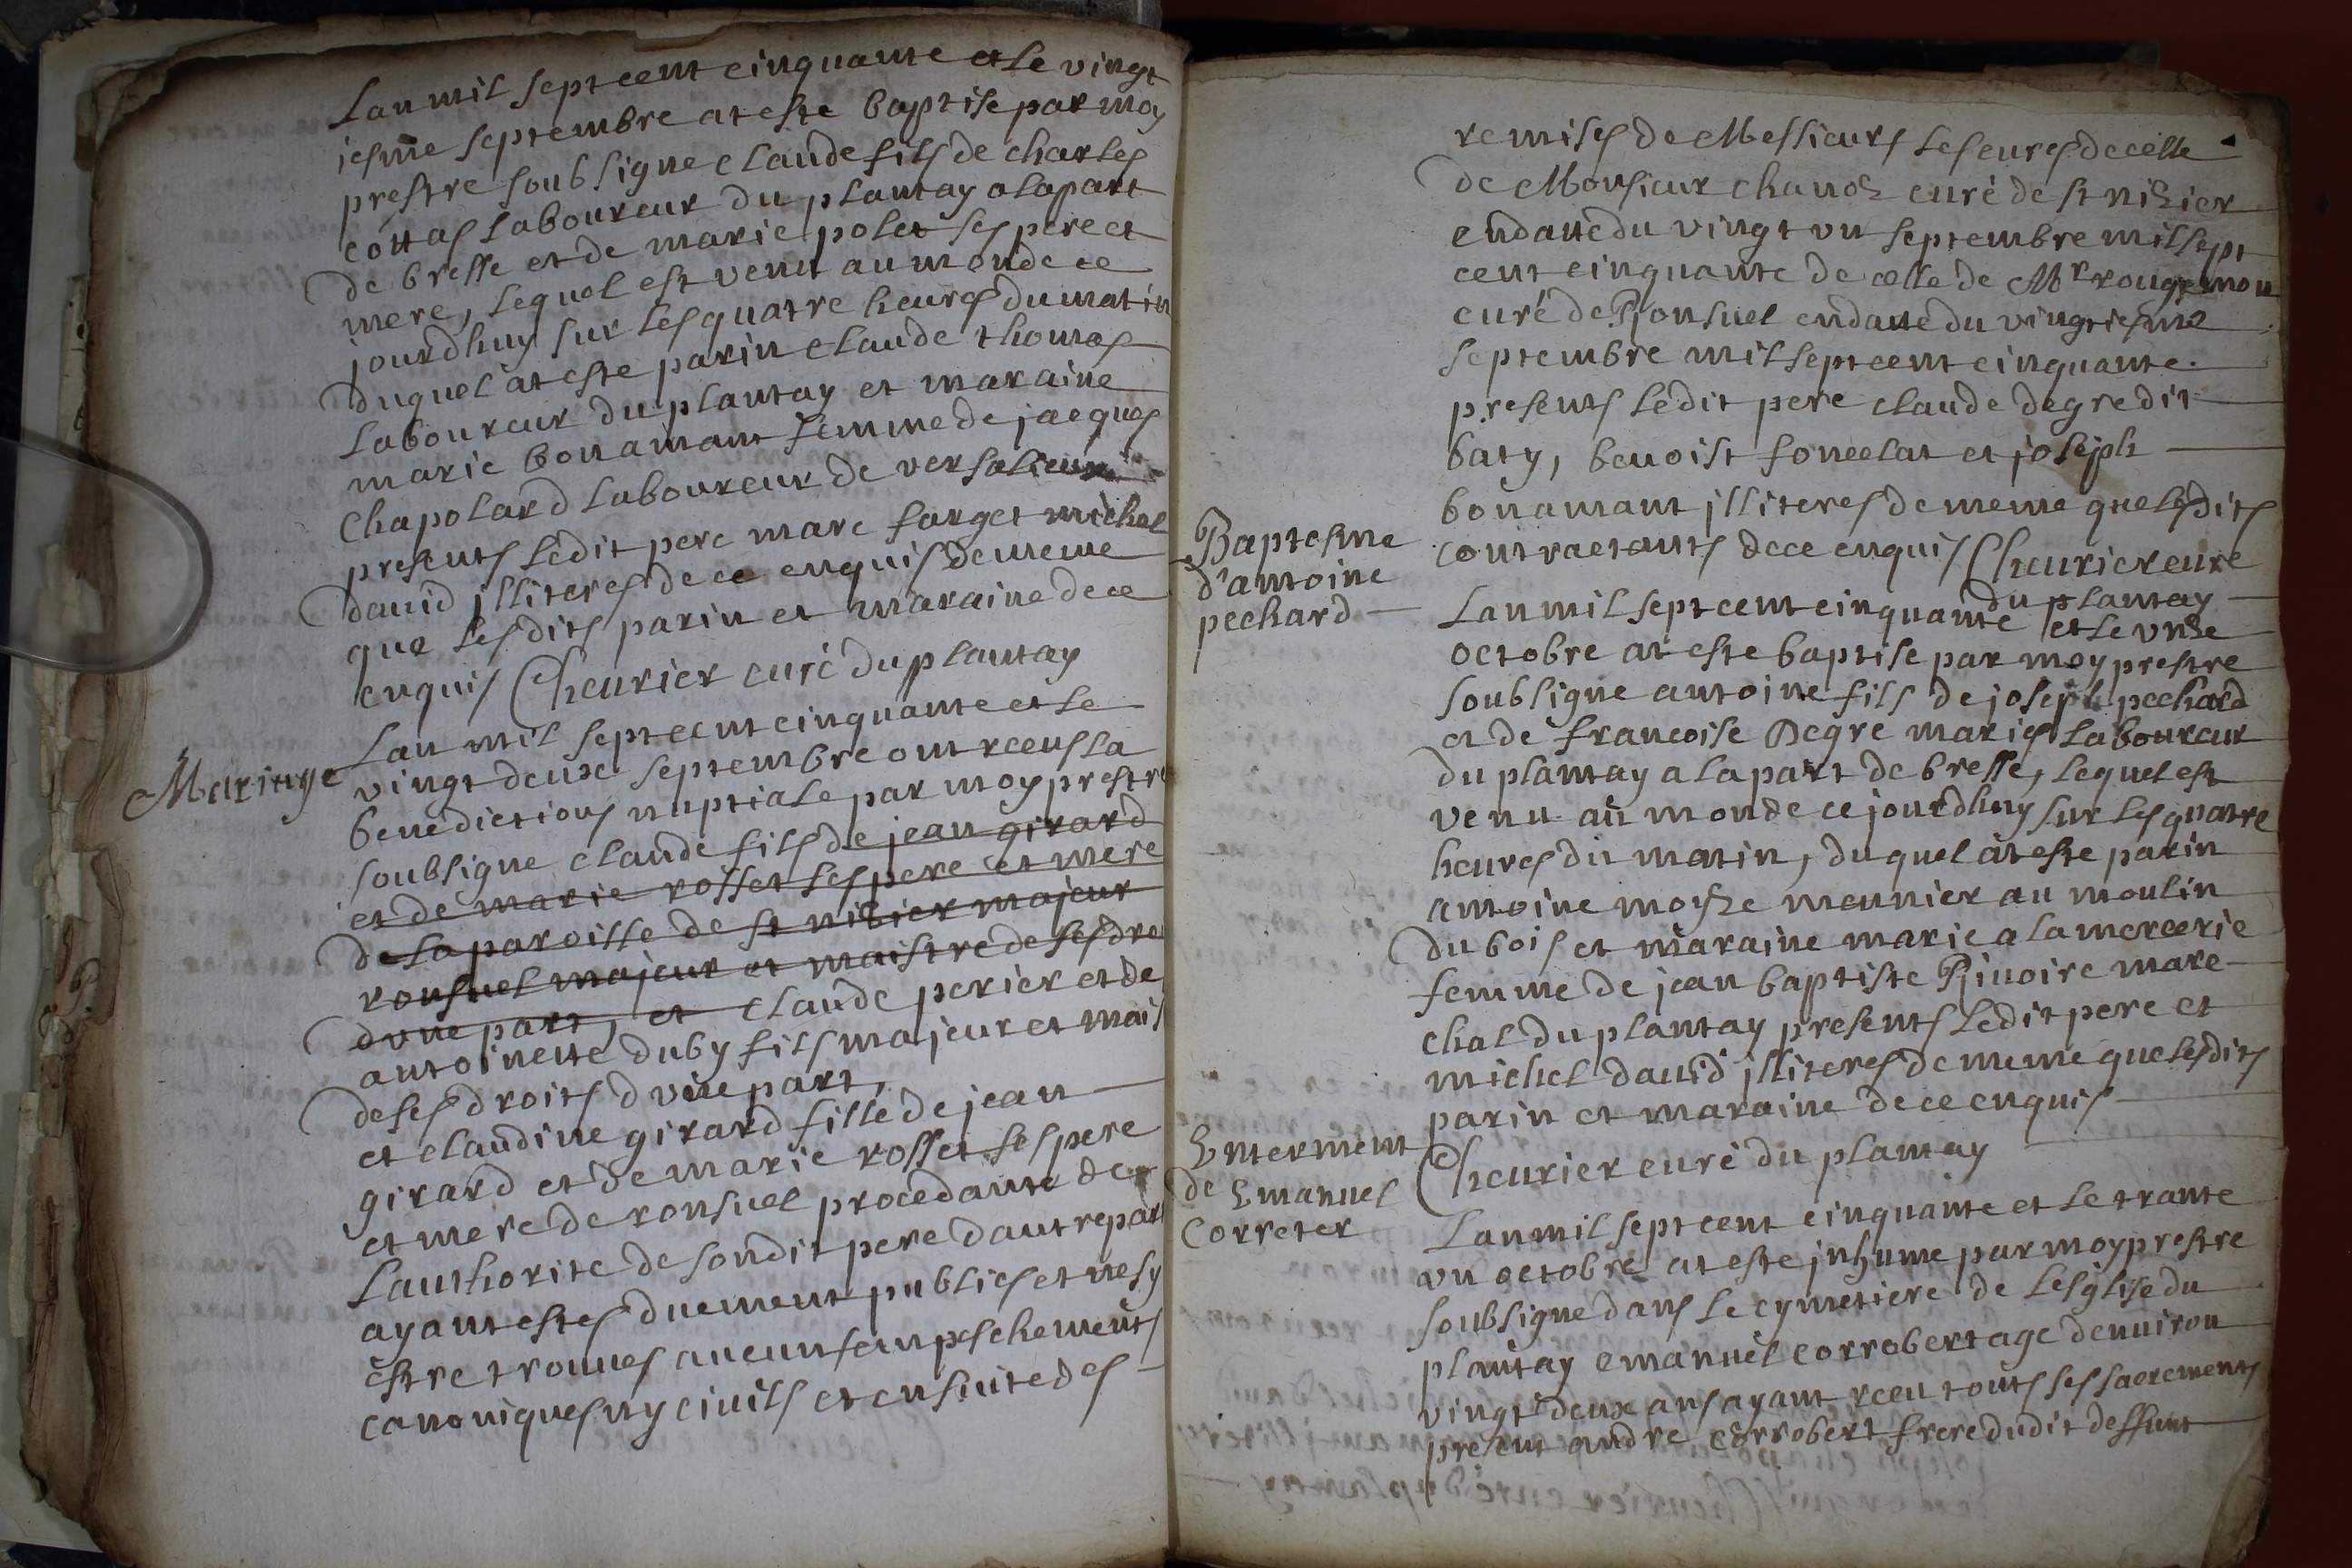 Lan mil sept cent cinquante et le vingt
iesme septembre at este baptise par moy
prestre soubsigne claude fils de charles
cottas laboureur du plantay a la part
de bresse et de marie polet ses pere et
mere, lequel est venu au monde ce
jourdhuy sur les quatre heures du matin
duquel at este parin claude thomas
laboureur du plantay et maraine
marie bonamant femme de jacques
Chapolard laboureur de versalieux
presents ledit pere marc farget michel
david illiteres de ce enquis de meme
que lesdits parin et maraine de ce
enquis Cheurier curé du plantay
Mariage
Lan mil sept cent cinquante et le
vingt deuxe septembre ont receus la
benedictions nuptiale par moy prestre
soubsigne claude fils de jean girard
et de marie rosset ses pere et mere
de la paroisse de st nizier majeur
ronsuel majeur et maistre de ses dro
dune part, et claude perier et de
antoinette duby fils majeur et mais
de ses droits dune part,
et claudine girard fille de jean
girard et de marie rosset ses pere
et mere de ronsuel procedante de
lauthorite de sondit pere dautre part
ayant estes duement publies et nesy
estre trouues aucuns empeschements
canoniques ny ciuils et ensuite des
remises de Messieurs les cures de celle
de Monsieur chanoz curé de st nizier
en datte du vingt vn septembre mil sept
cent cinquante de celle de Mr rougemon
curé de Ronsuel en datte du vingtiesme
septembre mil sept cent cinquante.
presents ledit pere claude degre dit
baty, benoist foncelat et joseph
bonamant illiteres de meme que lesdits
contractants de ce enquis Cheurier cure
du plantay
Baptesme
d'antoine
pechard
Lan mil sept cent cinquante et le vnze
octobre at este baptise par moy prestre
soubsigne antoine fils de joseph pechard
et de francoise Degre maries laboureur
du plantay a la part de bresse, lequel est
venu au monde ce jourdhuy sur les quatre
heures du matin, duquel at este parin
antoine moyse meunier au moulin
du bois et maraine marie a la mercerie
femme de jean baptiste Rinoire mare
chal du plantay presents ledit pere et
michel david illiteres de meme que lesdits
parin et maraine de ce enquis
Cheurier curé du plantay
Enterment
de Emanuel
Correter
Lan mil sept cent cinquante et le trante
vn octobre at este inhume par moy prestre
soubsigne dans le cymetiere de lesglise du
plantay emanuel corrobert age denuiron
vingt deux ans ayant receu touts ses sacrements
present andre corrobert frere dudit deffunt